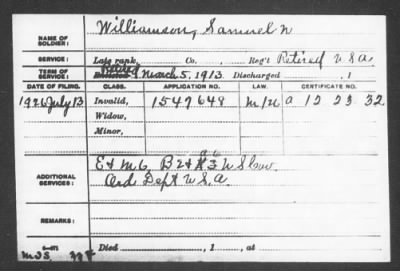 NAME OF SOLDIER: Williamson, Samuel N
SERVICE: Late rank, Co. , Reg't Retired U S A.
TERM OF SERVICE: Retired March 5, 1913. Discharged , 1
DATE OF FILING. CLASS. APPLICATION NO. LAW. CERTIFICATE NO.
1926 July 13 Invalid, 1547649 M/U a 12 23 32
Widow,
Minor,
ADDITIONAL SERVICES: E & M 6, B 2 & 3 U S Cav.
Ord Dept U.S.A.
REMARKS:
Died , 1 , at
M.J.S.